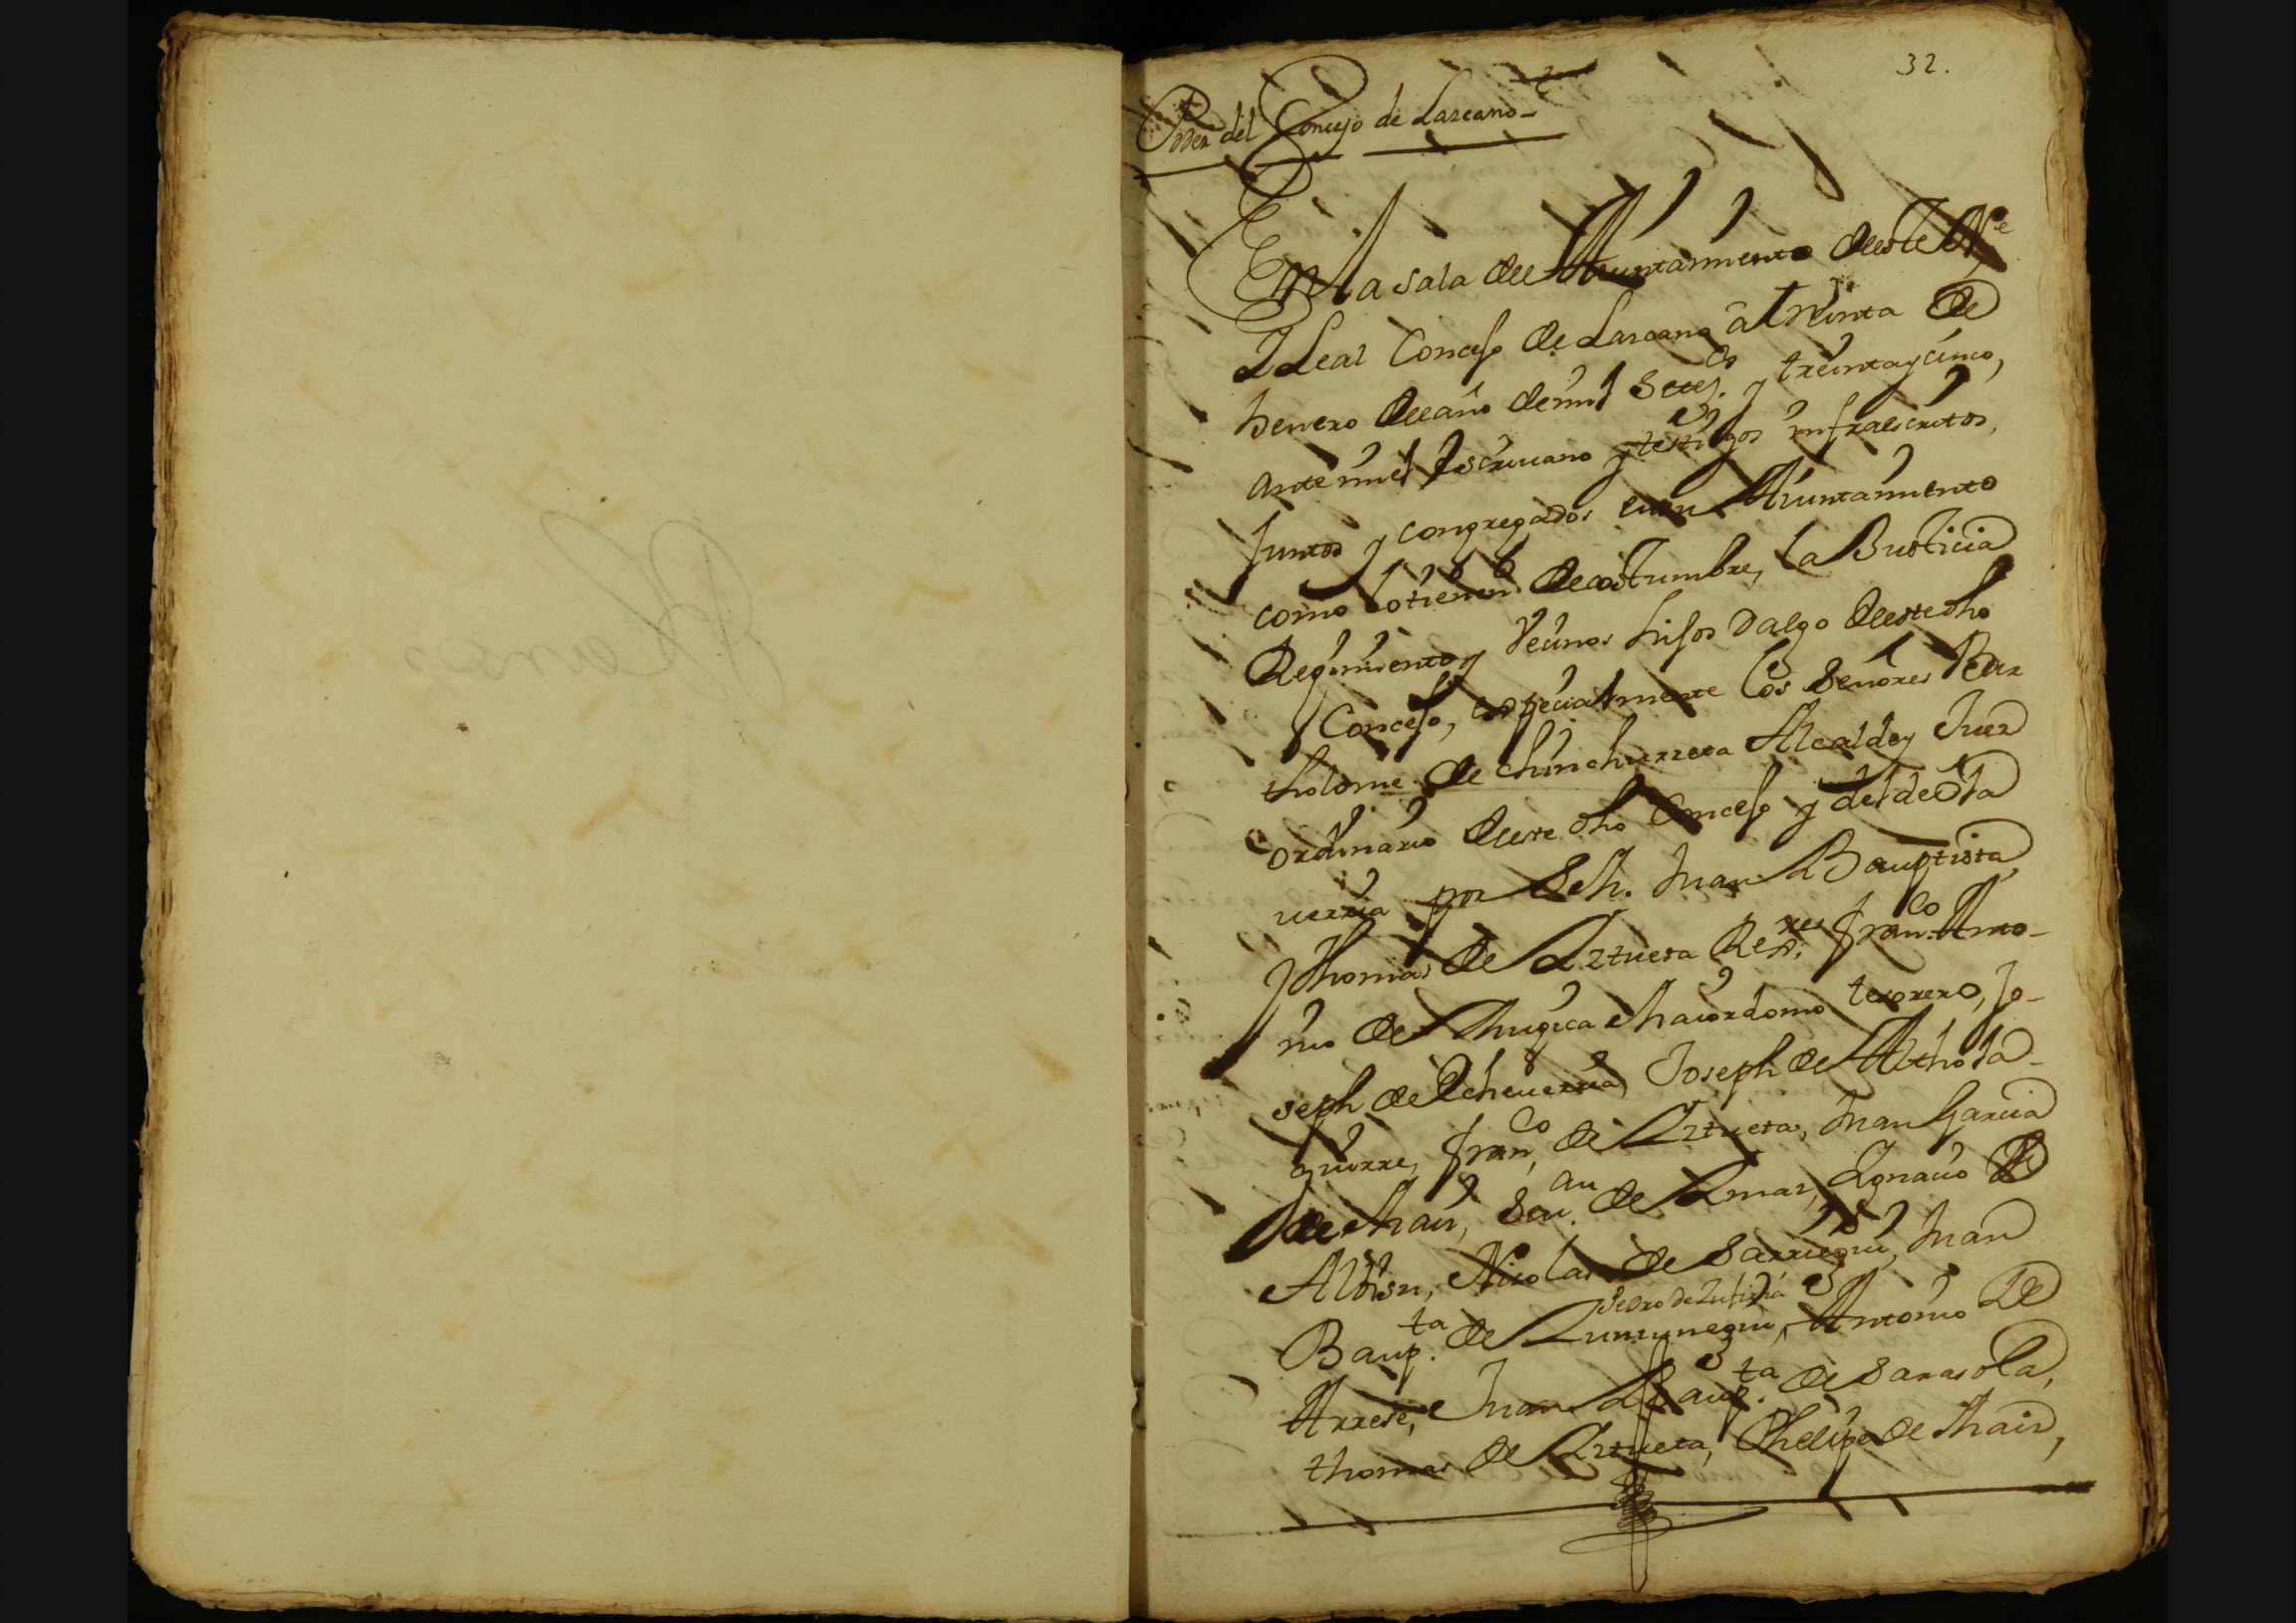 32.
Poder del Concejo de Lazcano-
En la sala del Aiuntamiento deeste Ne
I Leal Concejo de Lazcano â treinta de
henero del año de mil Setezos y treintaycinco,
ante mi el Escriuano y testigos infraescritos,
Juntos y congregados en su Aiuntamiento
como lo tienen de costumbre, la Justicia
Regimiento y Vecinos hijos dalgo deeste dho
Concejo, especialmente los Señores Bar
tholome de Chinchurreta Alcalde y Juez
ordinario deeste dho Concejo y del de Ola
uerria por S. M. Juan Bauptista,
Ithomas de Aztueta Rexres, Franco Anto-
nio de Mugica Maiordomo tesorero, Jo-
seph de Echeuerria, Joseph de Athola-
guirre, Franco de Aztueta, Juan Garcia
de Maiz, Seuan de Amaz, Ignacio de
Albisu, Nicolas de Sarriegui, Juan
Pedro de
Baupta de Zumunegui, Antonio de
Arrese, Juan Baupta de Sarasola,
thomas de Aztueta, Phelipe de Maiz,